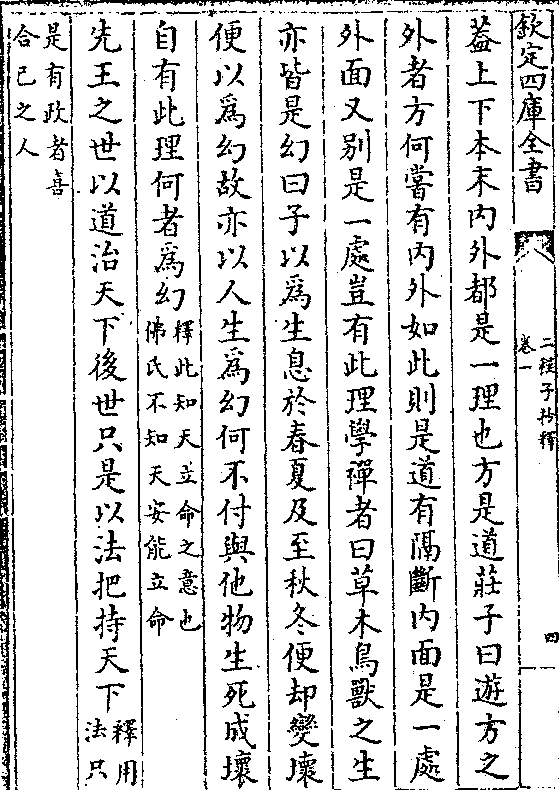 欽定四庫全書
二程子抄釋
卷一
四
葢上下本末内外都是一理也方是道莊子曰遊方之
外者方何嘗有内外如此則是道有隔斷内面是一處
外面又别是一處豈有此理學禪者曰草木鳥獸之生
亦皆是幻曰子以為生息於春夏及至秋冬便却變壞
便以為幻故亦以人生為幻何不付與他物生死成壞
自有此理何者為幻
釋此知天立命之意也
佛氏不知天安能立命
先王之世以道治天下後世只是以法把持天下
釋用
法只
是有政者喜
合己之人